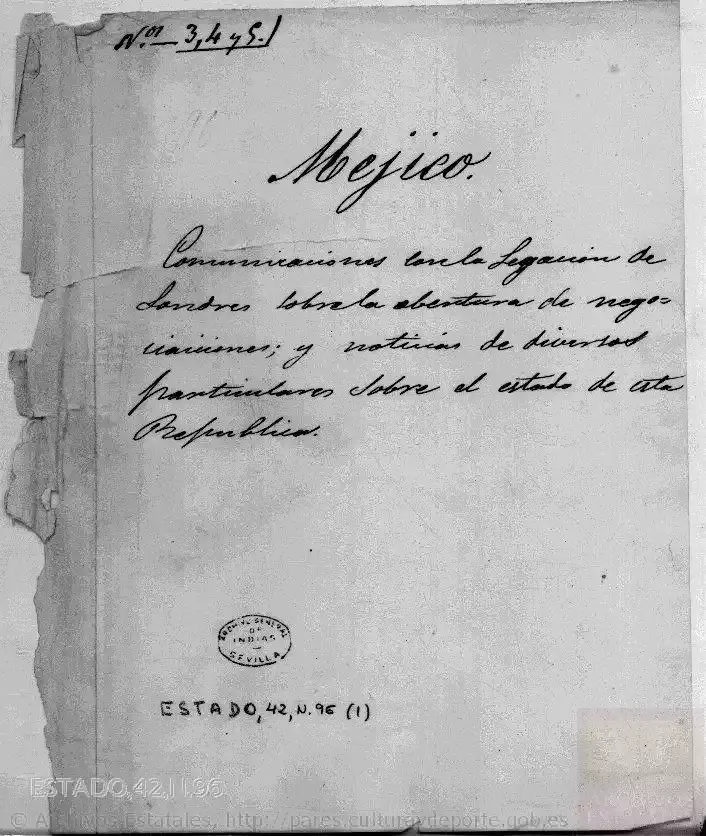 N.os 3, 4 y 5.
Mejico.
Comunicaciones con la Legacion de
Londres sobre la abertura de nego=
ciaciones; y noticias de diversos
particulares sobre el estado de esta
Republica.
ARCHIVO GENERAL
DE
INDIAS
SEVILLA
ESTADO,42,N.96 (1)
ESTADO,42,N.96
© Archivos Estatales, http://pares.culturaydeporte.gob.es